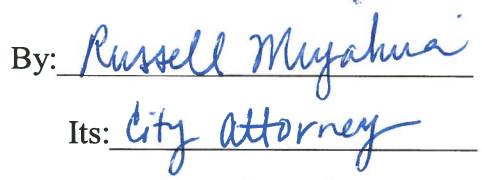 By: Russell Miyahira
Its: City Attorney